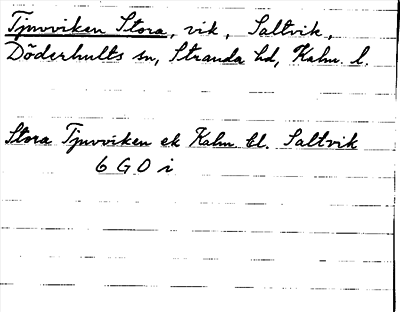 Tjuvviken Stora, vik, Saltvik,
Döderhults sn, Stranda hd, Kalm. l.
Stora Tjuvviken ek Kalm bl. Saltvik
6 G O i